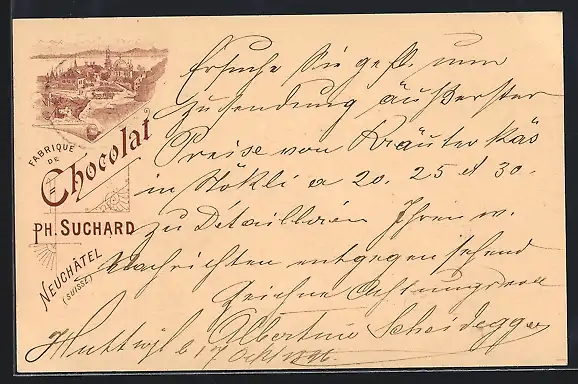 FABRIQUE
DE
Chocolat
PH. SUCHARD
NEUCHÂTEL
(SUISSE)
Ersuche Sie gefl. um
Zusendung äußerster
Preise von Kräuterkäs
in Stökli a 20. 25 et 30.
zu Détaillieren Ihren w.
Nachrichten entgegen sehend
Zeichne Achtungsvoll
Albertine Scheidegger
Huttwyl 17 Okt. 1896